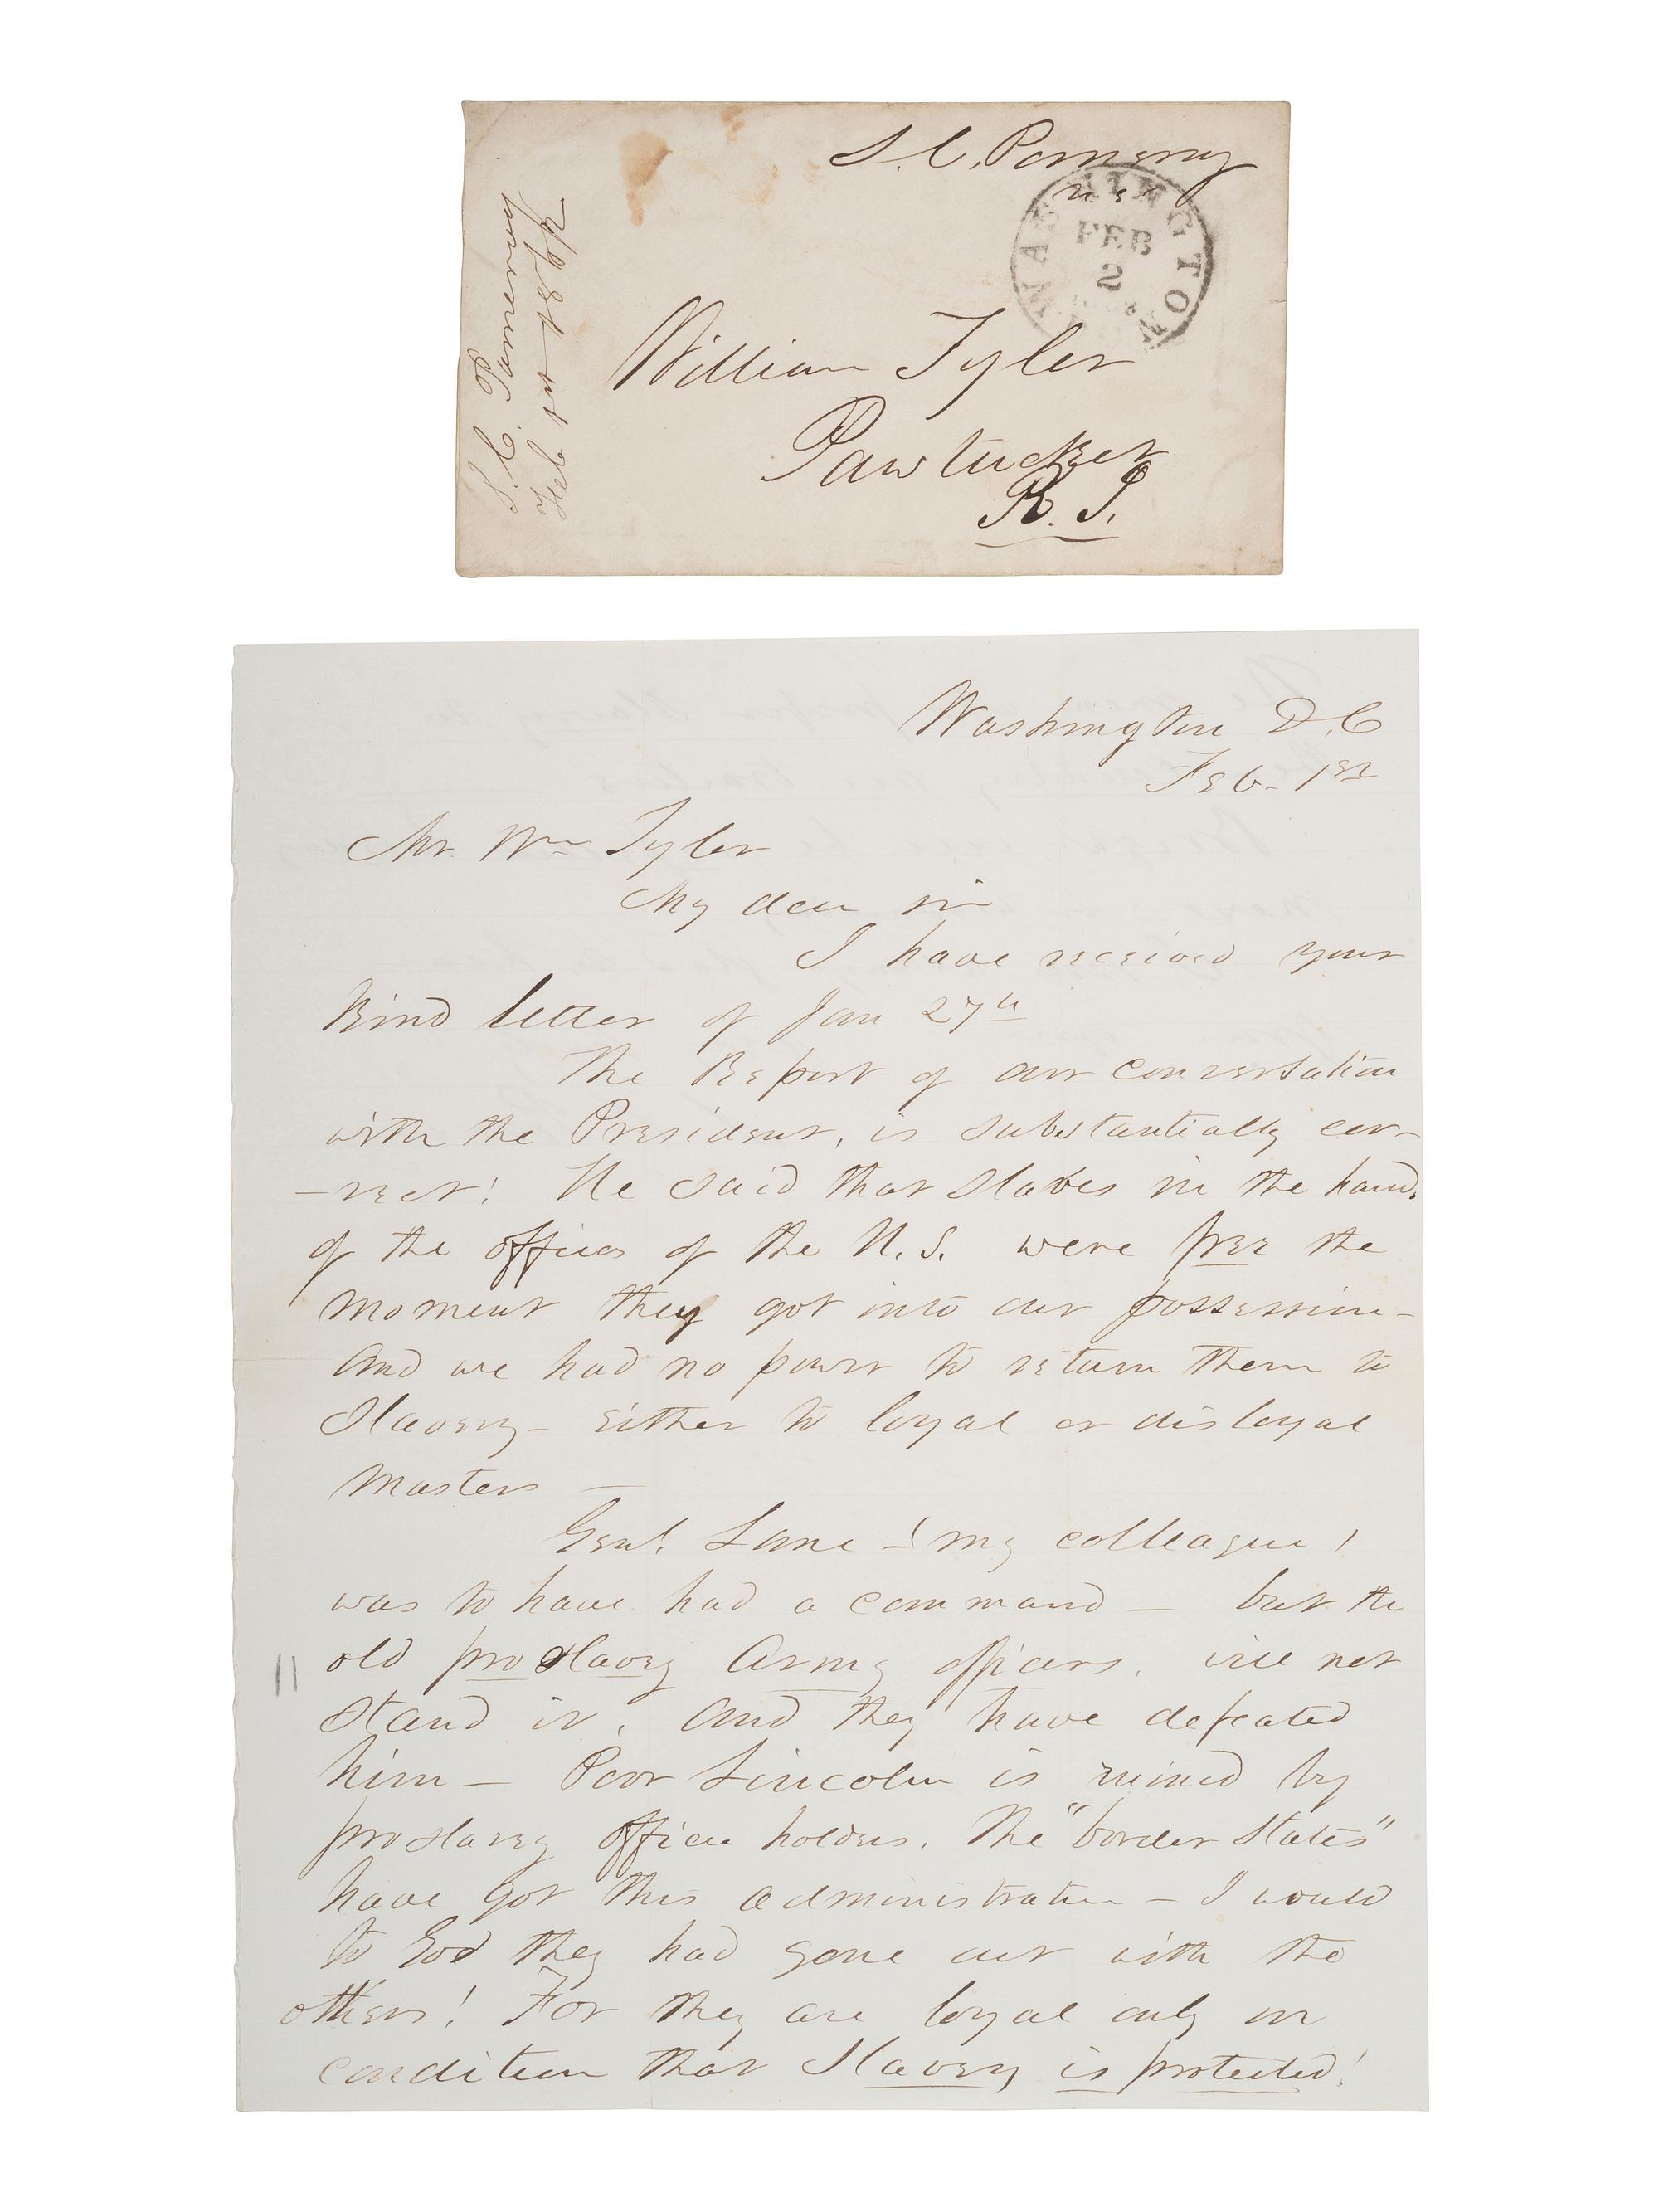 S. C. Pomeroy
U S S
WASHINGTON
FEB
2
William Tyler
Pawtucket
R. I.
S. C. Pomeroy
Feb 1st 1862
Washington D.C
Feb. 1st
Mr. Wm Tyler
My dear sir
I have received your
kind letter of Jan 27th
The Report of our conversation
with the President, is substantially cor-
-rect! He said that slaves in the hands
of the officers of the U.S. were free the
moment they got into our possession-
and we had no power to return them to
Slavery- either to loyal or disloyal
masters —
Genl. Lane - (my colleague)
was to have had a command — but the
old proslavery Army officers, will not
stand it, and they have defeated
him — Poor Lincoln is ruined by
proslavery office holders. The "border States"
have got this administration — I would
to God they had gone out with the
others! For they are loyal only on
condition that Slavery is protected!